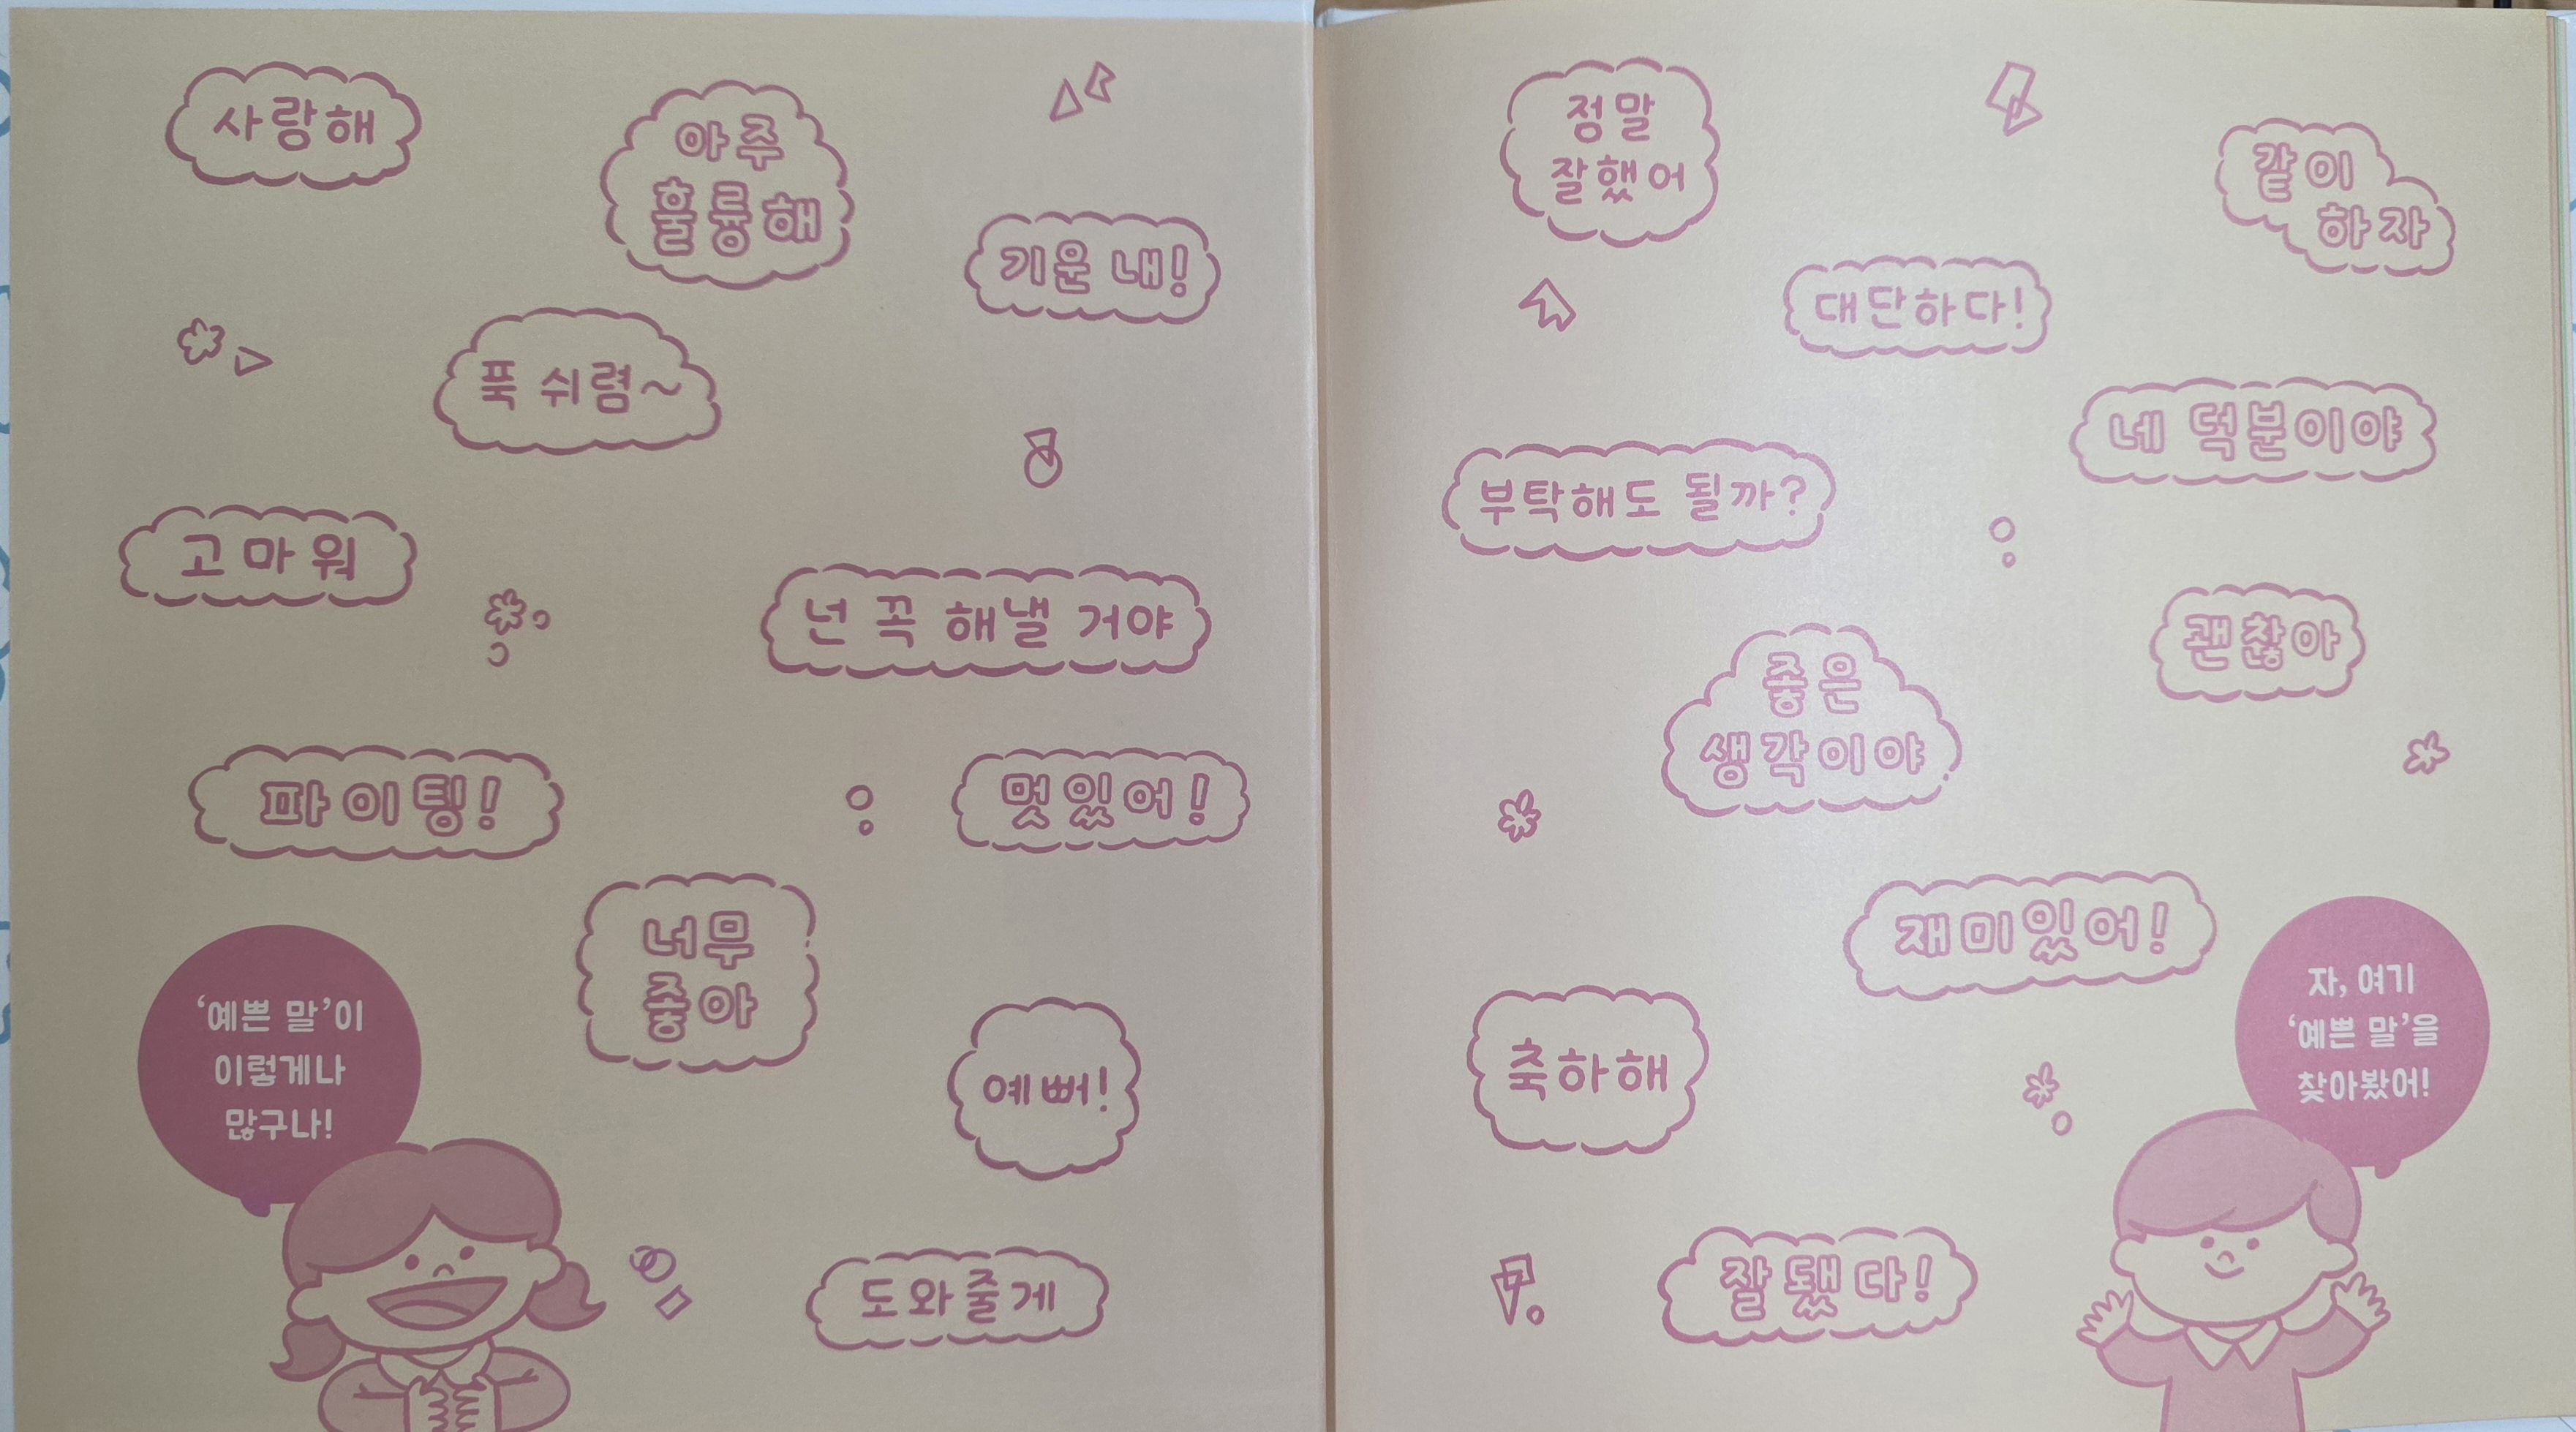 사랑해
아주
훌륭해
기운 내!
푹 쉬렴~
고마워
넌 꼭 해낼 거야
파이팅!
멋있어!
너무
좋아
예뻐!
도와줄게
‘예쁜 말’이
이렇게나
많구나!
정말
잘했어
같이
하자
대단하다!
네 덕분이야
부탁해도 될까?
괜찮아
좋은
생각이야
재미있어!
축하해
잘됐다!
자, 여기
‘예쁜 말’을
찾아봤어!